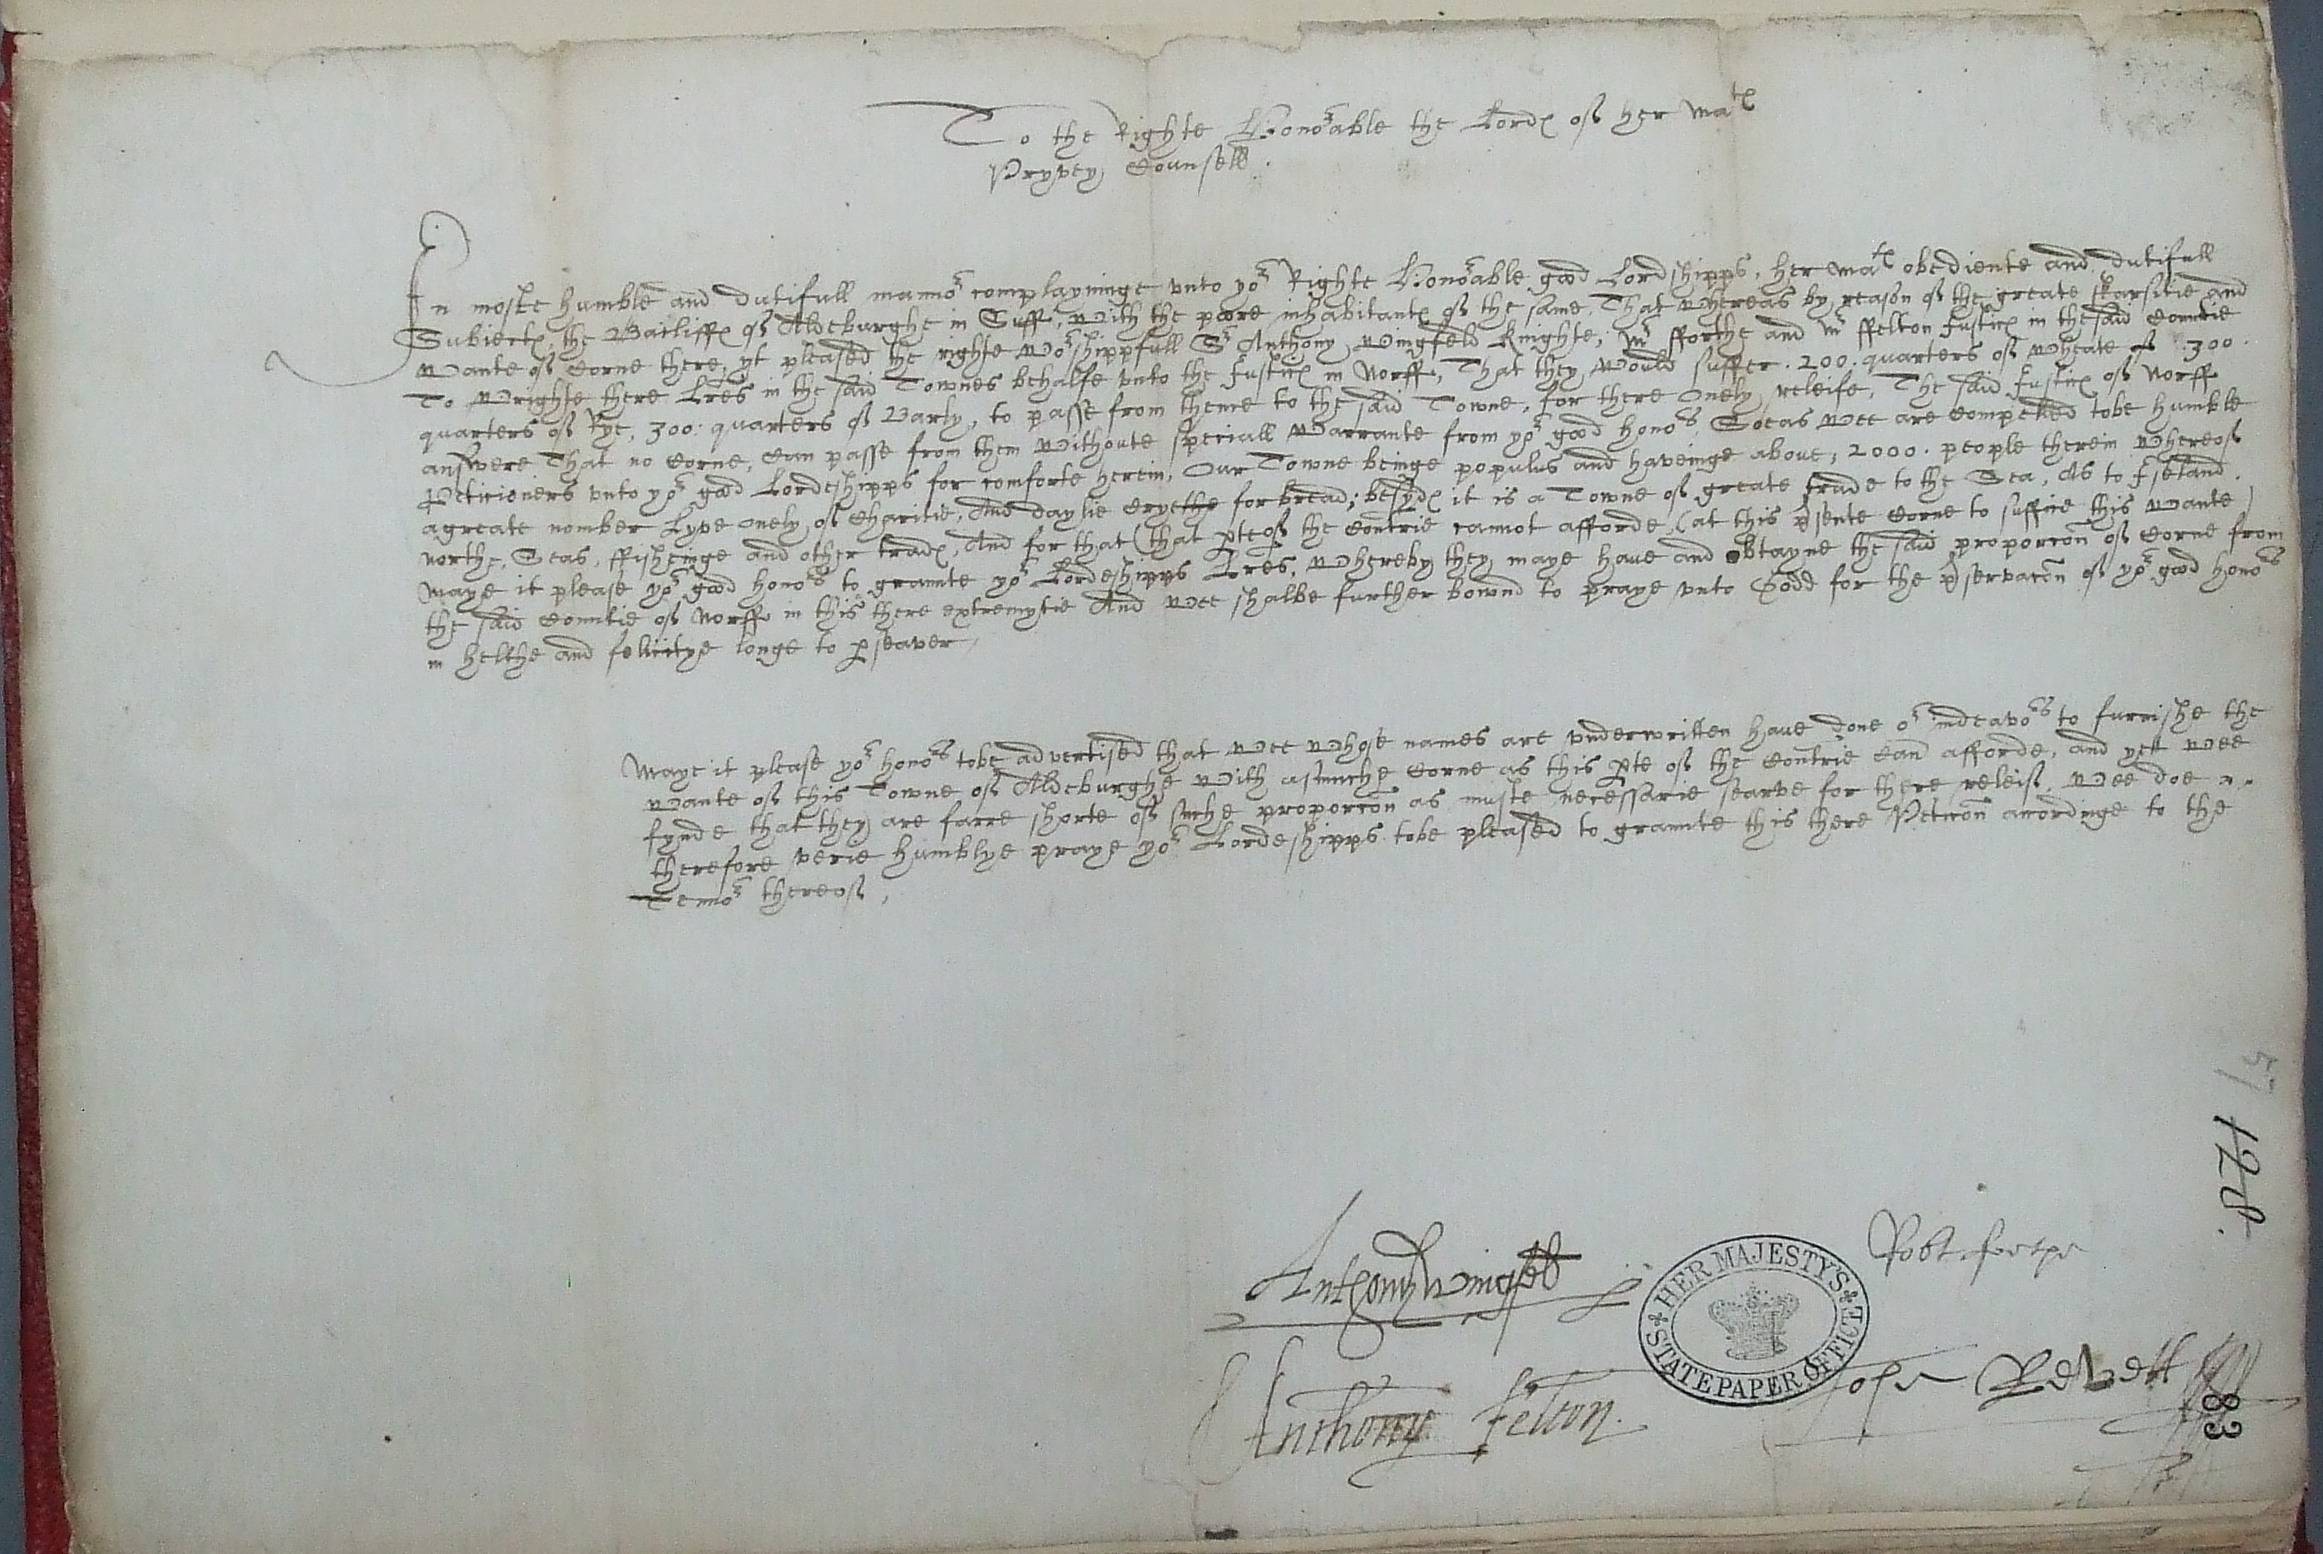 To the Righte Honorable the Lordes of her Mates
Pryvey Counsell.
In moste humble and dutifull mannor complayninge vnto yor Righte Honorable good Lordshipps, her Mates obediente and dutifull
Subiectes, the Bailiffes of Aldeburghe in Suff, with the poore inhabitantes of the same, That whereas by reason of the greate skarsitie and
wante of Corne there, yt pleased the righte Worshippfull Sr Anthony Wingfeld Knighte, Mr fforthe and Mr ffelton Justices in the said Countie
To wrighte there Lres in the said Townes behalfe vnto the Justices in Norff, That they would suffer .200. quarters of wheate of 300.
quarters of Rye, 300: quarters of Barly, to passe from theme to the said Towne, for there onely releife, The said Justices of Norff
answere That no Corne, Can passe from them withoute speciall Warrante from yor good honors, Soeas wee are Compelled tobe humble
Peticioners vnto yor good Lordeshipps for comforte herein, Our Towne beinge populus and haveinge above, 2000. people therein whereof
agreate nomber Lyve onely of Charitie, And daylie Cryethe for bread; besydes it is a Towne of greate trade to the Sea, As to Iseland.
Northe, Seas, ffisheinge and other trades, And for that (that pte of the Contrie cannot afforde (at this psente Corne to suffice this wante)
Maye it please yor good honors to graunte yor Lordeshipps Lres, whereby they maye have and obtayne the said proporcon of Corne from
the said Countie of Norff in this there extremytie And wee shalbe further bownd to praye vnto Godd for the pservacon of yor good honors
in helthe and felicitye longe to pseaver,
Maye it please yor honors tobe advertised that wee whose names are vnderwritten have done or indeavors to furnishe the
wante of this Towne of Aldeburghe with asmuche Corne as this pte of the Contrie Can afforde, and yett wee
fynde that they are farre shorte of suche proporcon as muste necessarie searve for there releif, wee doe
therefore verie humblye praye yor Lordeshipps tobe pleased to graunte this there Peticon accordinge to the
Tennor thereof,
57
128.
Anthony Wingfeld
Robt forthe
HER MAJESTY'S STATE PAPER OFFICE
Anthony Felton.
John Revett
83